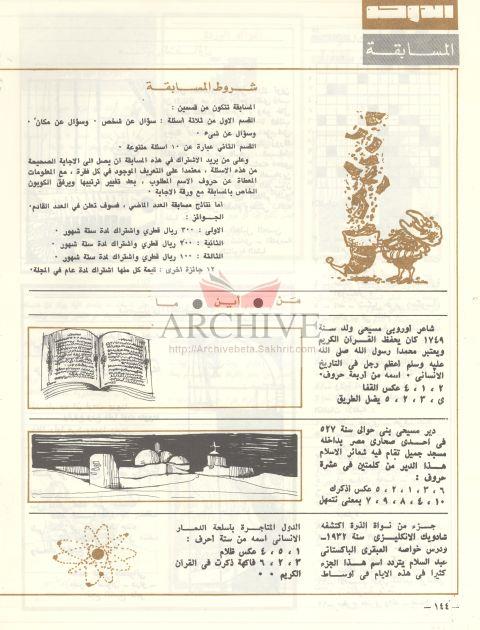 الدوحة
المسابقة
شروط المسابقة
المسابقة تتكون من قسمين :
القسم الاول من ثلاثة اسئلة : سؤال عن شخص ٠ وسؤال عن مكان ٠
وسؤال عن شيء ٠
القسم الثاني عبارة عن ١٠ اسئلة متنوعة ٠
وعلى من يريد الاشتراك في هذه المسابقة ان يصل الى الاجابة الصحيحة
من هذه الاسئلة ، معتمدا على التعريف الموجود في كل فقرة ، مع المعلومات
المعطاة عن حروف الاسم المطلوب ، بعد تغيير ترتيبها ويرفق الكوبون
الخاص بالمسابقة مع ورقة الاجابة ٠
اما نتائج مسابقة العدد الماضي ، فسوف تعلن في العدد القادم ٠
الجوائز :
الاولى : ٣٠٠ ريال قطري واشتراك لمدة ستة شهور ٠
الثانية : ٢٠٠ ريال قطري واشتراك لمدة ستة شهور ٠
الثالثة : ١٠٠ ريال قطري واشتراك لمدة ستة شهور ٠
١٢ جائزة اخرى : قيمة كل منها اشتراك لمدة عام في المجلة ٠
من ● اين ● ما
ARCHIVE
http://Archivebeta.Sakhrit.com
شاعر اوروبي مسيحي ولد سنة
١٧٤٩ كان يحفظ القرآن الكريم
ويعتبر محمدا رسول الله صلى الله
عليه وسلم أعظم رجل في التاريخ
الانساني ٠ اسمه من أربعة حروف ٠
٢ ، ١ ، ٤ عكس القفا
ى ، ٣ ، ٢ ، ٥ يضل الطريق
دير مسيحي بني حوالى سنة ٥٢٧
في احدى صحارى مصر بداخله
مسجد جميل تقام فيه شعائر الاسلام
هذا الدير من كلمتين في عشرة
حروف :
٦ ، ٣ ، ١ ، ٢ ، ٥ عكس اذكرك
١٠ ، ٤ ، ٨ ، ٧ ، ٩ بمعنى نتمهل
جزء من نواة الذرة اكتشفه
شادويك الانكليزي سنة ١٩٣٢ـ
ودرس خواصه العبقري الباكستاني
عبد السلام يتردد اسم هذا الجزء
كثيرا في هذه الايام في اوساط
الدول المتاجرة باسلحة الدمار
الانساني اسمه من ستة احرف :
١ ، ٥ ، ٤ عكس ظلام
٦ ، ٢ ، ٣ فاكهة ذكرت في القرآن
الكريم ٠ ٠
— ١٤٤ —